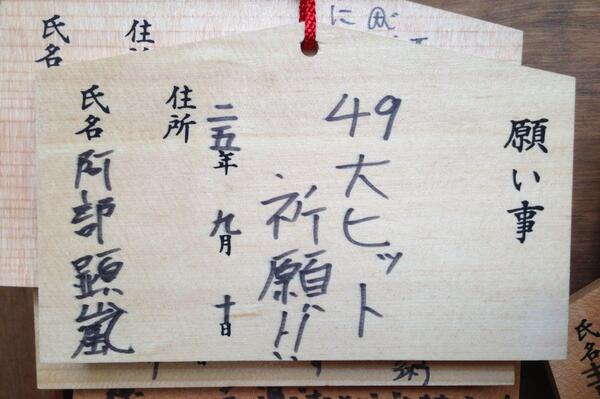 願い事
49大ヒット
祈願!!
二五年 九月 十日
住所
氏名 阿部 顕嵐
氏名
住所
に
氏名